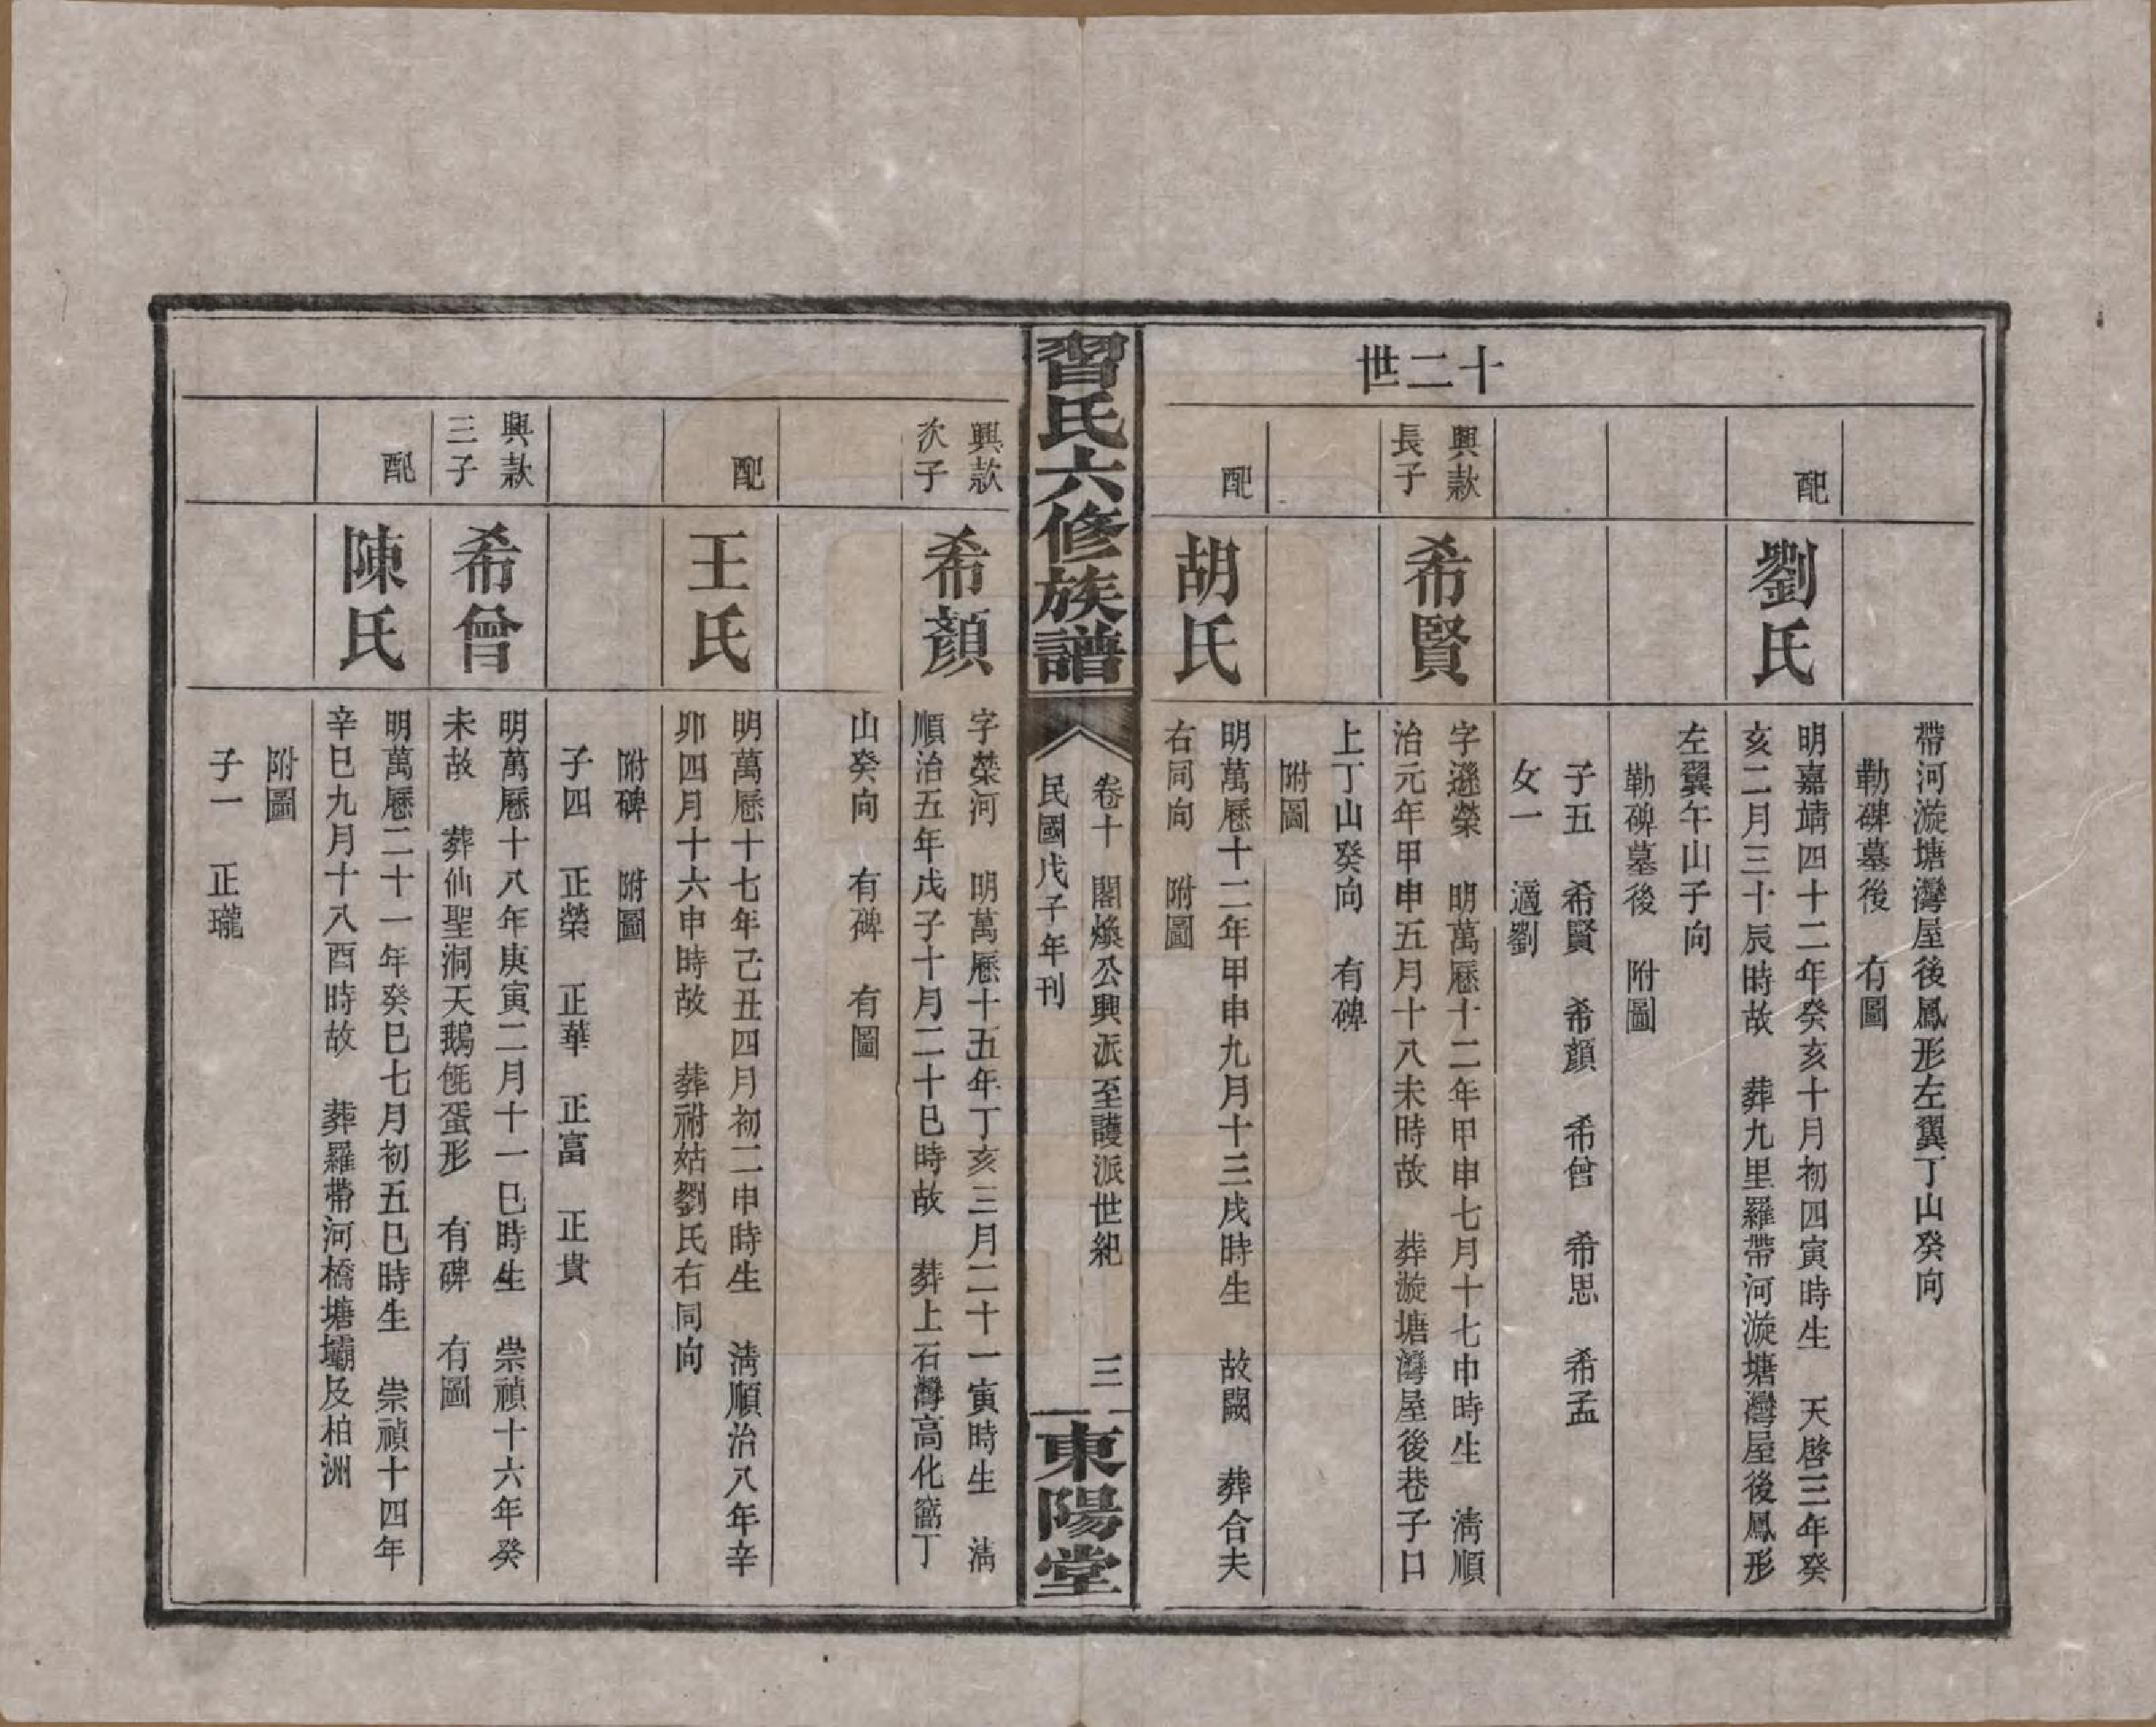 帶河漩塘灣屋後鳳形左翼丁山癸向
勒碑墓後　有圖
配
劉氏
明嘉靖四十二年癸亥十月初四寅時生　天啓三年癸
亥二月三十辰時故　葬九里羅帶河漩塘灣屋後鳳形
左翼午山子向
勒碑墓後　附圖
子五　希賢　希顏　希曾　希思　希孟
女一　適劉
十二世
興款
長子
希賢
字遜榮　明萬曆十二年甲申七月十七申時生　淸順
治元年甲申五月十八未時故　葬漩塘灣屋後巷子口
上丁山癸向　有碑
附圖
配
胡氏
明萬曆十二年甲申九月十三戌時生　故闕　葬合夫
右同向　附圖
習氏六修族譜
卷十　閣煥公興派至護派世紀　三
民國戊子年刊
東陽堂
興款
次子
希顏
字榮河　明萬曆十五年丁亥三月二十一寅時生　淸
順治五年戊子十月二十巳時故　葬上石灣高化窩丁
山癸向　有碑　有圖
配
王氏
明萬曆十七年己丑四月初二申時生　淸順治八年辛
卯四月十六申時故　葬祔姑劉氏右同向
附碑　附圖
子四　正榮　正華　正富　正貴
興款
三子
希曾
明萬曆十八年庚寅二月十一巳時生　崇禎十六年癸
未故　葬仙聖洞天鵝蛋形　有碑　有圖
配
陳氏
明萬曆二十一年癸巳七月初五巳時生　崇禎十四年
辛巳九月十八酉時故　葬羅帶河橋塘壩及柏洲
附圖
子一　正瓏